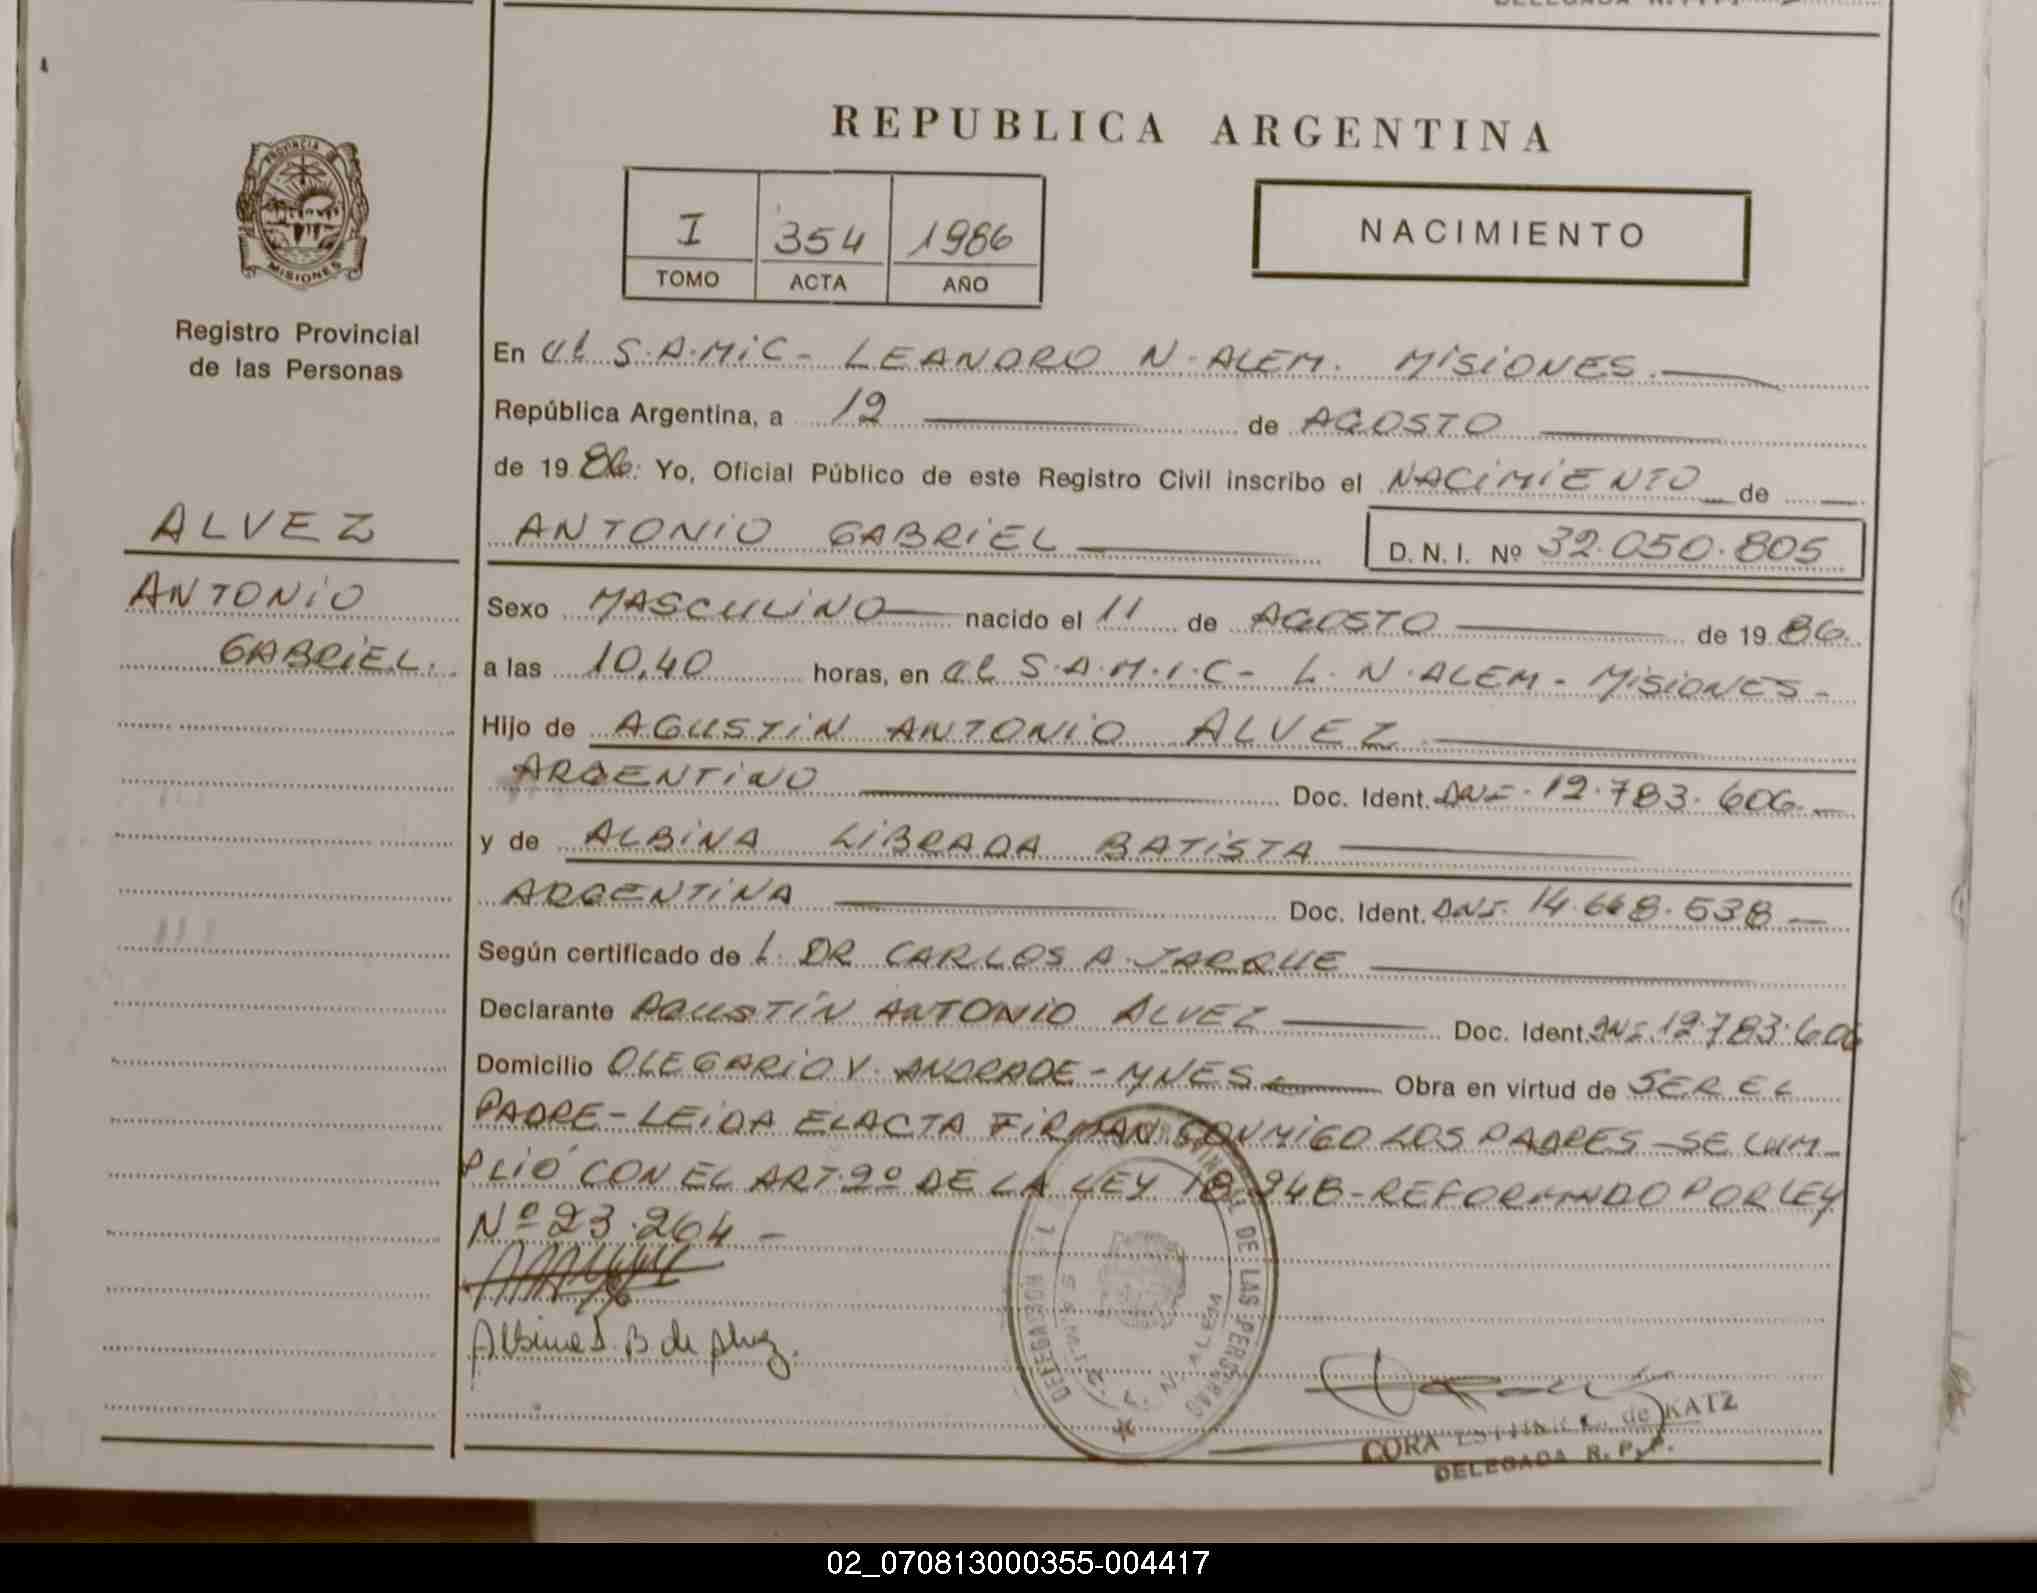 REPUBLICA ARGENTINA
PROVINCIA
MISIONES
Registro Provincial
de las Personas
I 354 1986
TOMO ACTA AÑO
NACIMIENTO
En el S.A.MiC- LEANDRO N. ALEM. MiSiONES.
República Argentina, a 12 de AGOSTO
de 1986. Yo, Oficial Público de este Registro Civil inscribo el NACiMiENTO de
ALVEZ
ANTONiO GABRiEL D.N.I. Nº 32.050.805
ANTONiO
GABRiEL.
Sexo MASCULiNO nacido el 11 de AGOSTO de 1986.
a las 10,40 horas, en el S.A.M.I.C- L.N.ALEM- MiSiONES-
Hijo de AGUSTiN ANTONiO ALVEZ
ARGENTiNO Doc. Ident. DNI. 12.783.606.
y de ALBiNA LiBRADA BATiSTA
ARGENTiNA Doc. Ident. DNI. 14.668.538
Según certificado de L. DR CARLOS A. JARQUE
Declarante AGUSTÍN ANTONIO ALVEZ Doc. Ident. DNI. 12.783.606
Domicilio OLEGARiO V. ANDRADE-MNES Obra en virtud de SER EL
PADRE-LEiDA EL ACTA FiRMAN CONMiGO LOS PADRES-SE CUM-
PLIÓ CON EL ART. 9º DE LA LEY 18.248-REFORMADO POR LEY
Nº 23.264-
Albina L. B de Alvez.
DE LAS PERSONAS
S.A.M.I.C. L. N. ALEM
DELEGADA
CORA ESTHER de KATZ
DELEGADA R. P. P.
02_070813000355-004417